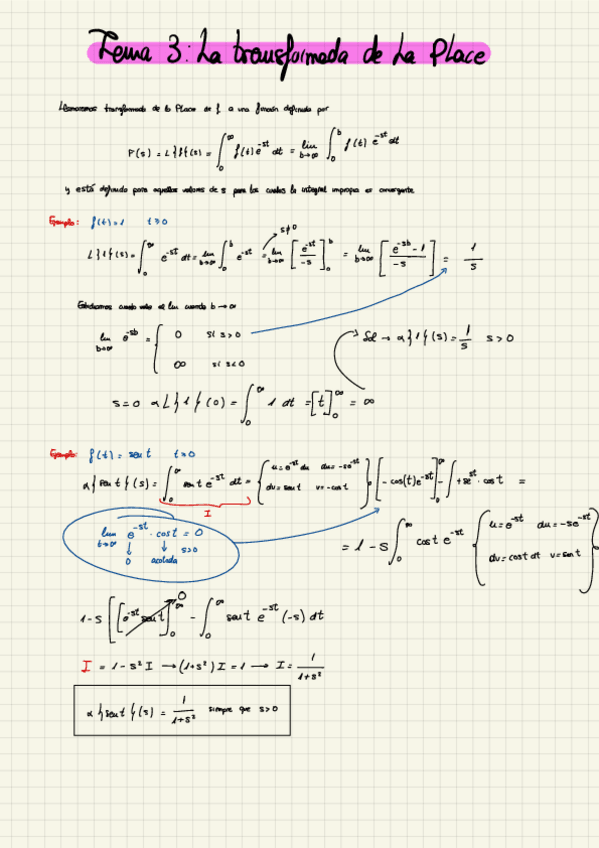 Tema 3: La transformada de La Place
Llamaremos transformada de la Place de f a una función definida por
F(s) = L{f}(s) = ∫₀^∞ f(t) e^-st dt = lim b→∞ ∫₀^b f(t) e^-st dt
y está definida para aquellos valores de s para los cuales la integral impropia es convergente.
Ejemplo: f(t)=1 t≥0
s≠0
L{1}(s) = ∫₀^∞ e^-st dt = lim b→∞ ∫₀^b e^-st = lim b→∞ [e^-st / -s]₀^b = lim b→∞ [e^-sb - 1 / -s] = 1/s
Estudiamos cuanto vale el lim cuando b→∞
lim b→∞ e^-sb = { 0 si s>0
∞ si s<0
Sol → α{1}(s) = 1/s s>0
s=0 α L{1}(0) = ∫₀^∞ 1 dt = [t]₀^∞ = ∞
Ejemplo: f(t) = sen t t≥0
α{sen t}(s) = ∫₀^∞ sen t e^-st dt = { u=e^-st du du=-se^-st
dv=sen t v=-cos t } [-cos(t)e^-st]₀^∞ - ∫ +se^-st · cos t =
I
lim t→∞ e^-st · cos t = 0
s>0
0 acotada
= 1 - s ∫₀^∞ cos t e^-st { u=e^-st du=-se^-st
dv=cos t dt v=sen t }
1-s [[e^-st sen t]₀^∞ - ∫₀^∞ sen t e^-st (-s) dt
0
I = 1 - s² I → (1+s²) I = 1 → I = 1/1+s²
α{sen t}(s) = 1/1+s² siempre que s>0